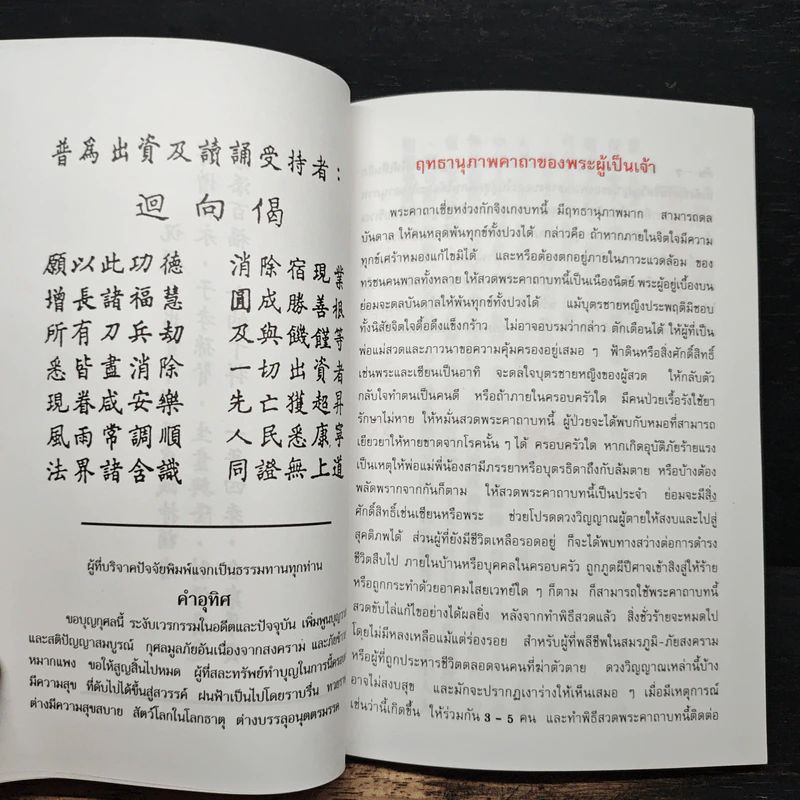 普爲出資及讀誦受持者：
迴向偈
願以此功德 消除宿現業
增長諸福慧 圓成勝善根
所有刀兵劫 及與饑饉等
悉皆盡消除 一切出資者
現眷咸安樂 先亡獲超昇
風雨常調順 人民悉康寧
法界諸含識 同證無上道
ผู้ที่บริจาคปัจจัยพิมพ์แจกเป็นธรรมทานทุกท่าน
คำอุทิศ
ขอบุญกุศลนี้ ระงับเวรกรรมในอดีตและปัจจุบัน เพิ่มพูนบุญ
และสติปัญญาสมบูรณ์ กุศลมูลภัยอันเนื่องจากสงคราม และภัย
หมากแพง ขอให้สูญสิ้นไปหมด ผู้ที่สละทรัพย์ทำบุญในการนี้
มีความสุข ที่ดับไปได้ขึ้นสู่สวรรค์ ฝนฟ้าเป็นไปโดยราบรื่น
ต่างมีความสุขสบาย สัตว์โลกในโลกธาตุ ต่างบรรลุอนุตตรมรรค
ฤทธานุภาพคาถาของพระผู้เป็นเจ้า
พระคาถาเฮี่ยหง่วงกักจิงเกงบทนี้ มีฤทธานุภาพมาก สามารถดล
บันดาล ให้คนหลุดพ้นทุกข์ทั้งปวงได้ กล่าวคือ ถ้าหากภายในจิตใจมีความ
ทุกข์เศร้าหมองแก้ไขมิได้ และหรือต้องตกอยู่ภายในภาวะแวดล้อม ของ
ทรชนคนพาลทั้งหลาย ให้สวดพระคาถาบทนี้เป็นเนืองนิตย์ พระผู้อยู่เบื้องบน
ย่อมจะดลบันดาลให้พ้นทุกข์ทั้งปวงได้ แม้บุตรชายหญิงประพฤติมิชอบ
ทั้งนิสัยจิตใจดื้อดึงแข็งกร้าว ไม่อาจอบรมว่ากล่าว ตักเตือนได้ ให้ผู้ที่เป็น
พ่อแม่สวดและภาวนาขอความคุ้มครองอยู่เสมอ ๆ ฟ้าดินหรือสิ่งศักดิ์สิทธิ์
เช่นพระและเซียนเป็นอาทิ จะดลใจบุตรชายหญิงของผู้สวด ให้กลับตัว
กลับใจทำตนเป็นคนดี หรือถ้าภายในครอบครัวใด มีคนป่วยเรื้อรังใช้ยา
รักษาไม่หาย ให้หมั่นสวดพระคาถาบทนี้ ผู้ป่วยจะได้พบกับหมอที่สามารถ
เยียวยาให้หายขาดจากโรคนั้น ๆ ได้ ครอบครัวใด หากเกิดอุบัติภัยร้ายแรง
เป็นเหตุให้พ่อแม่พี่น้องสามีภรรยาหรือบุตรธิดาถึงกับล้มตาย หรือบ้างต้อง
พลัดพรากจากกันก็ตาม ให้สวดพระคาถาบทนี้เป็นประจำ ย่อมจะมีสิ่ง
ศักดิ์สิทธิ์เช่นเซียนหรือพระ ช่วยโปรดดวงวิญญาณผู้ตายให้สงบและไปสู่
สุคติภพได้ ส่วนผู้ที่ยังมีชีวิตเหลือรอดอยู่ ก็จะได้พบทางสว่างต่อการดำรง
ชีวิตสืบไป ภายในบ้านหรือบุคคลในครอบครัว ถูกภูตผีปีศาจเข้าสิงสู่ให้ร้าย
หรือถูกกระทำด้วยอาคมไสยเวทย์ใด ๆ ก็ตาม ก็สามารถใช้พระคาถาบทนี้
สวดขับไล่แก้ไขอย่างได้ผลยิ่ง หลังจากทำพิธีสวดแล้ว สิ่งชั่วร้ายจะหมดไป
โดยไม่มีหลงเหลือแม้แต่ร่องรอย สำหรับผู้ที่พลีชีพในสมรภูมิ-ภัยสงคราม
หรือผู้ที่ถูกประหารชีวิตตลอดจนคนที่ฆ่าตัวตาย ดวงวิญญาณเหล่านี้บ้าง
อาจไม่สงบสุข และมักจะปรากฏเงาร่างให้เห็นเสมอ ๆ เมื่อมีเหตุการณ์
เช่นว่านี้เกิดขึ้น ให้ร่วมกัน 3 - 5 คน และทำพิธีสวดพระคาถาบทนี้ติดต่อ